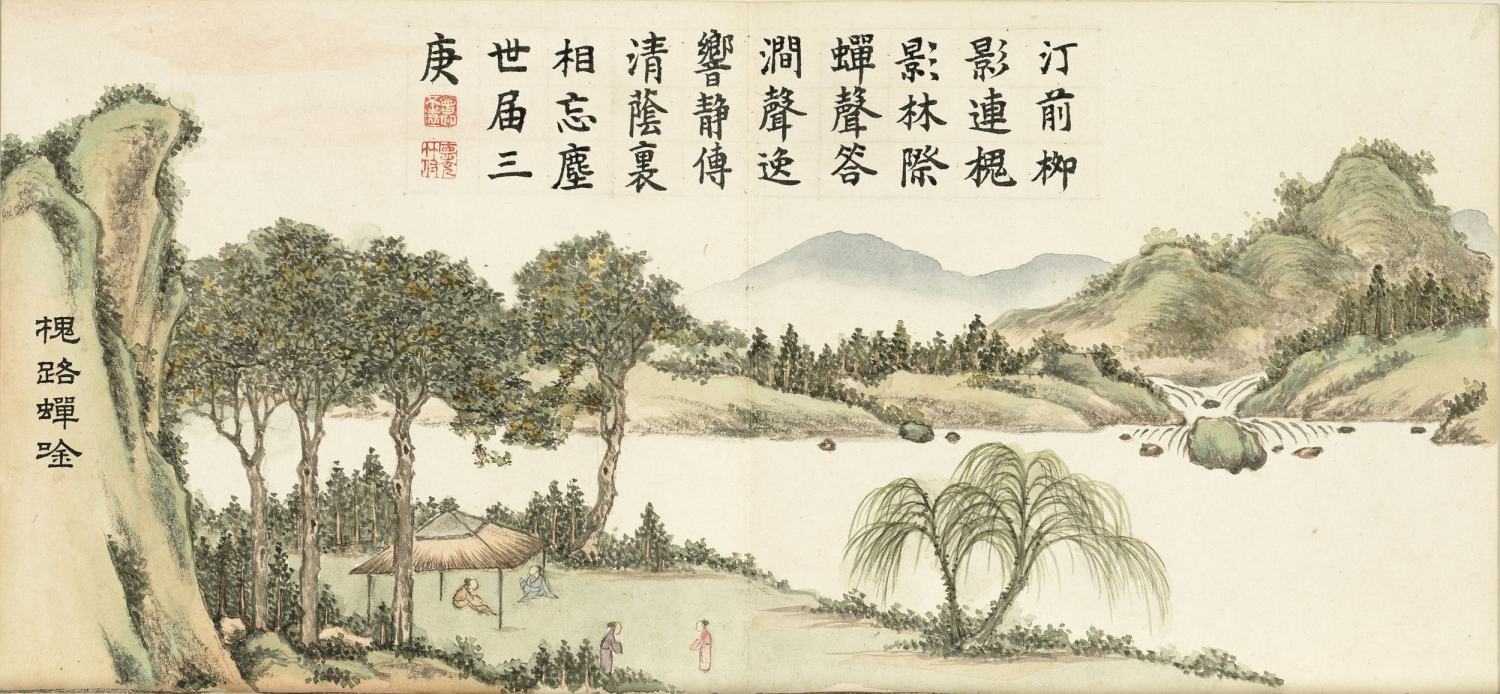 汀前柳
影連槐
影林際
蟬聲答
澗聲逸
響静傳
清蔭裏
相忘塵
世届三
庚
槐路蟬唫